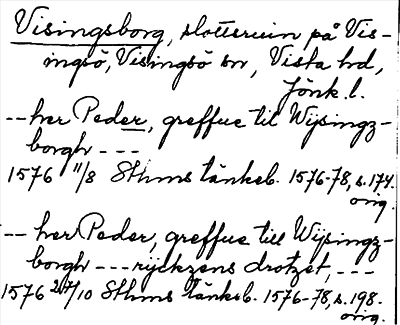 Visingsborg, slottsruin på Vis-
ingsö, Visingsö sn, Vista hd,
Jönk. l.
-- her Peder, greffue til Wijsingz-
borgh ---
1576 11/8 Sthms tänkeb. 1576-78, s. 174.
orig.
-- her Peder, greffue till Wijsingz-
borgh --- rijckzens drotzet, ---
1576 24/10 Sthms tänkeb. 1576-78, s. 198.
orig.